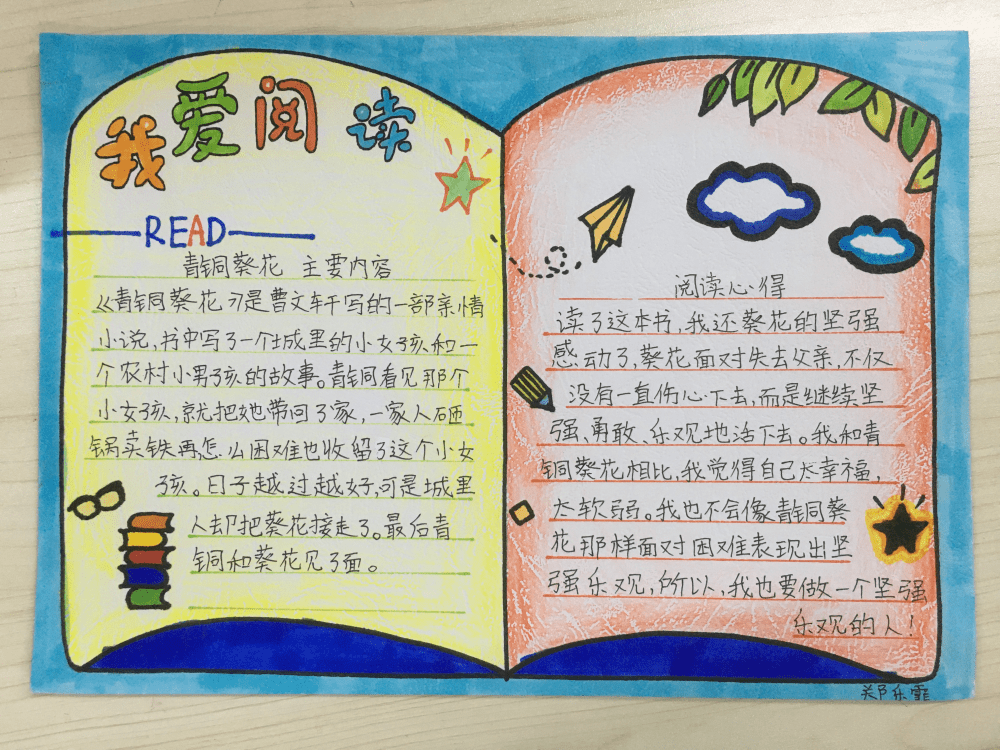 我爱阅读
READ
青铜葵花 主要内容
《青铜葵花》是曹文轩写的一部亲情
小说,书中写了一个城里的小女孩和一
个农村小男孩的故事。青铜看见那个
小女孩,就把她带回了家,一家人砸
锅卖铁再怎么困难也收留了这个小女
孩。日子越过越好,可是城里
人却把葵花接走了。最后青
铜和葵花见了面。
阅读心得
读了这本书,我还葵花的坚强
感动了,葵花面对失去父亲,不仅
没有一直伤心下去,而是继续坚
强、勇敢、乐观地活下去。我和青
铜葵花相比,我觉得自己太幸福,
太软弱。我也不会像青铜葵
花那样面对困难表现出坚
强乐观,所以,我也要做一个坚强
乐观的人!
郑乐霏